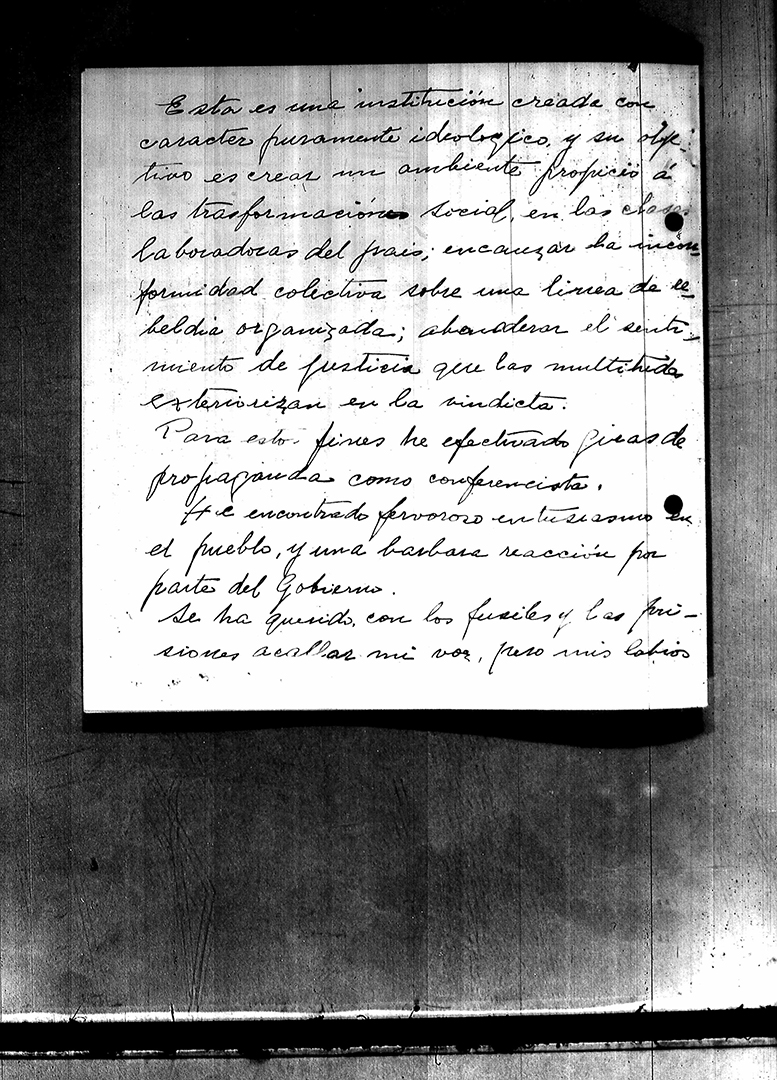 Esta es una institución creada con
caracter puramente ideologico, y su obje-
tivo es crear un ambiente propicio á
las trasformaciónes social, en las clases
laboradoras del pais; encauzar la incon-
formidad colectiva sobre una linea de re-
beldia organizada; abanderar el senti-
miento de justicia que las multitudes
exteriorizan en la vindicta.
Para estos fines he efectuado giras de
propaganda como conferencista.
He encontrado fervoroso entusiasmo en
el pueblo, y una barbara reacción por
parte del Gobierno.
Se ha querido, con los fusiles y las pri-
siones acallar mi voz, pero mis labios